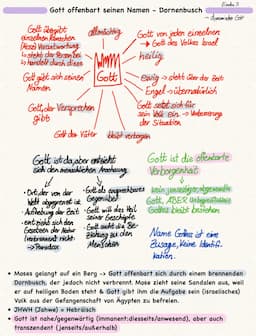 Gott offenbart seinen Namen - Dornenbusch
Exodus 3
Gott übergibt
einzelnen Menschen
(Mose) Verantwortung
→ steht der Person bei
→ handelt durch diesen
allmächtig
Gott von jedem einzelnen
→ Gott des Volkes Israel
heilig
JHWH
Gott
Gott gibt sich seinen
Namen
ewig → steht über der Zeit
Engel → übernatürlich
Gott, der Versprechen
gibt
Gott setzt sich für
sein Volk ein → Verbesserung
der Situation
Gott der Väter
bleibt verborgen
Gott ist da, aber entzieht
sich der menschlichen Anschauung
Gott ist die offenbarte
Verborgenheit
• Ort, der von der
Welt abgegrenzt ist
• Aufhebung der Zeit
• entzieht sich den
Gesetzen der Natur
(verbrennt nicht)
→ Paradox
• Gott als ansprechbares
Gegenüber
• Gott will das Heil
seiner Geschöpfe
• Gott sucht die Be-
ziehung zu den
Menschen
Gott, ABER
Gottes bleibt bestehen
Name Gottes ist eine
Zusage, keine Identifi-
kation.
• Moses gelangt auf ein Berg → Gott offenbart sich durch einem brennenden
Dornbusch, der jedoch nicht verbrennt. Mose zieht seine Sandalen aus, weil
er auf heiligen Boden steht & Gott gibt ihm die Aufgabe sein (israelisches)
Volk aus der Gefangenschaft von Ägypten zu befreien.
• JHWH (Jahwe) = Hebräisch
• Gott ist nahe/gegenwärtig (immanent:diesseits/anwesend), aber auch
transzendent (jenseits/außerhalb)